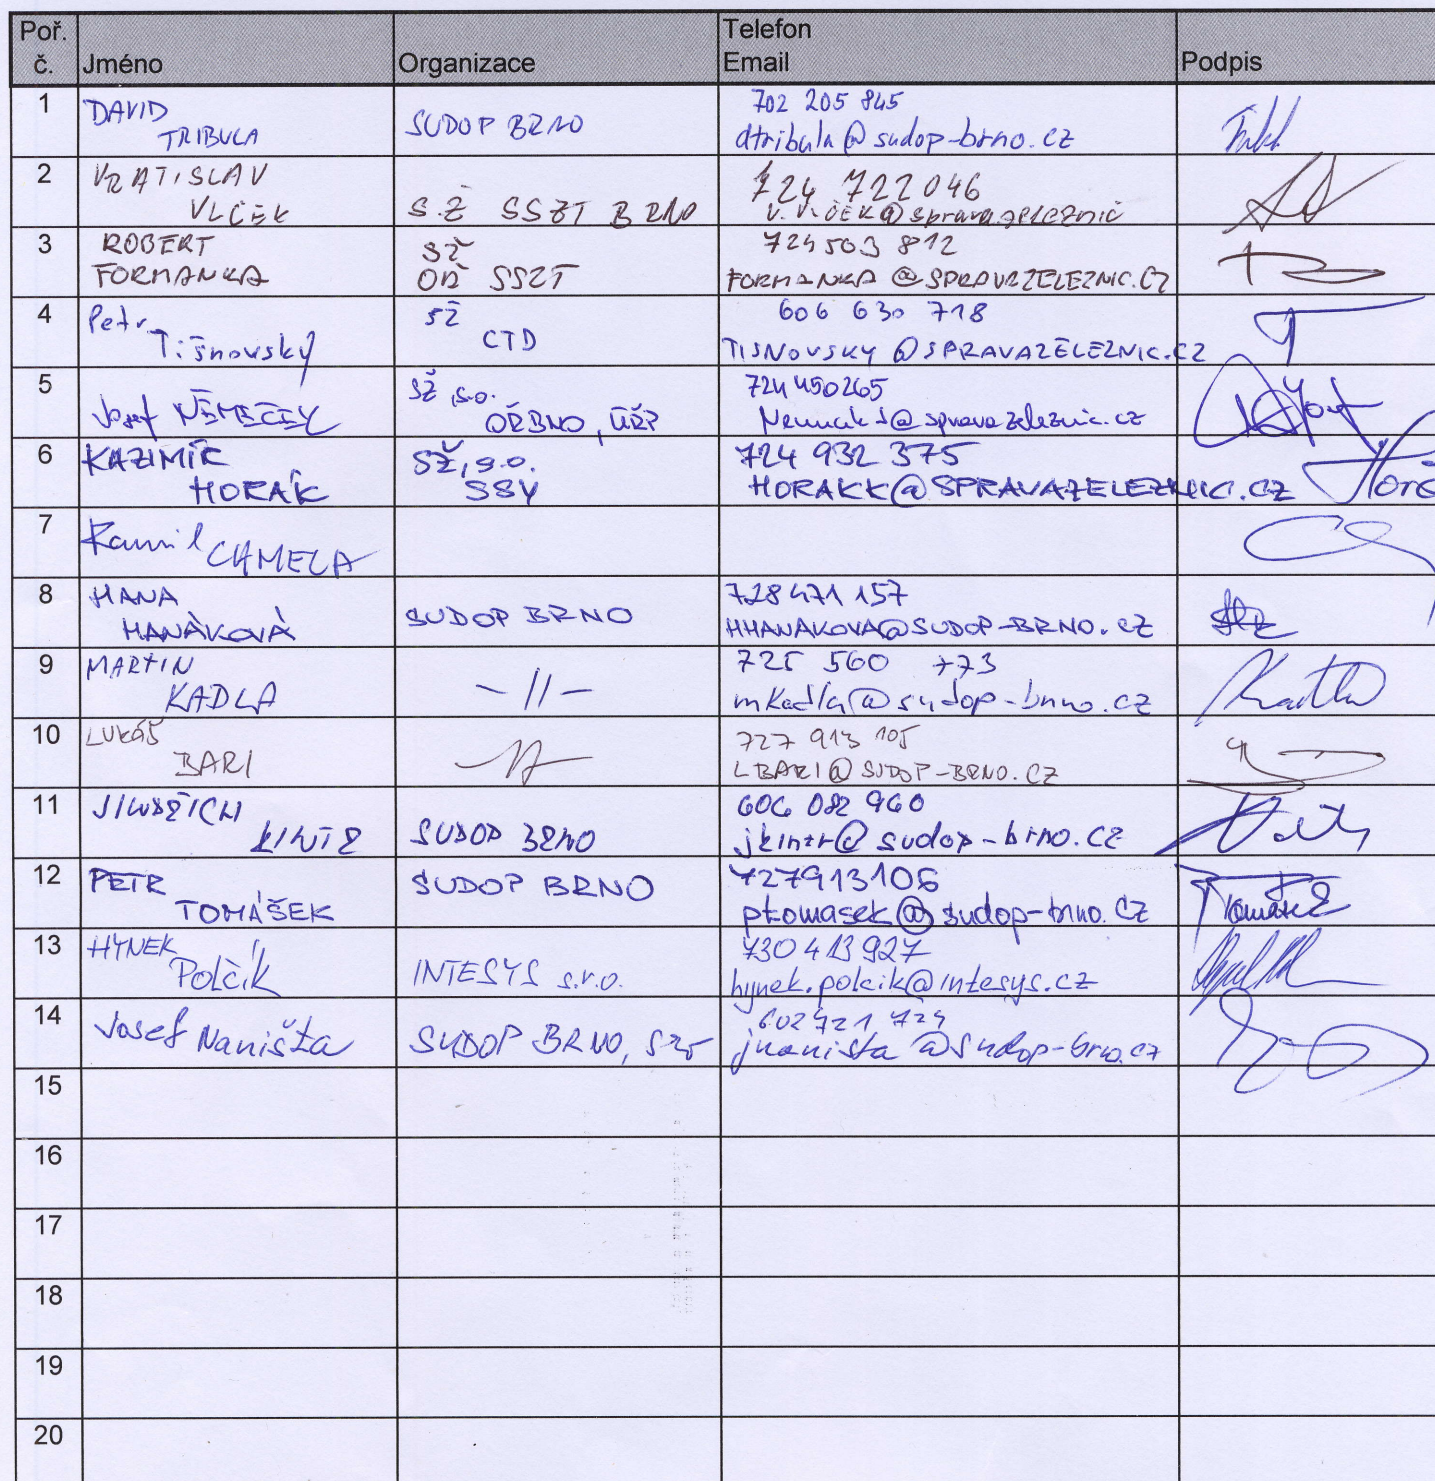 Poř. č. Jméno Organizace Telefon Email Podpis
1 DAVID TRIBULA SUDOP BRNO 702 205 845 dtribula@sudop-brno.cz
2 VRATISLAV VLČEK S.Ž SSZT BRNO 724 722 046
3 ROBERT FORMANKA SŽ OŘ SSZT 724 503 812 FORMANKA@SPRAVAZELEZNIC.CZ
4 Petr Tišnovský SŽ CTD 606 630 718 TISNOVSKY@SPRAVAZELEZNIC.CZ
5 Josef NĚMEČEK SŽ, s.o. 724 450 265
6 KAZIMÍR HORÁK SŽ, s.o. SSV 724 932 375 HORAKK@SPRAVAZELEZNIC.CZ
7 Kamil CHMELA
8 HANA HANÁKOVÁ SUDOP BRNO 728 471 157 HHANAKOVA@SUDOP-BRNO.CZ
9 MARTIN KADLA -//- 725 560 773 mkadla@sudop-brno.cz
10 LUKÁŠ BARI -//- 727 913 105 LBARI@SUDOP-BRNO.CZ
11 JINDŘICH KINTR SUDOP BRNO 606 082 960 jkintr@sudop-brno.cz
12 PETR TOMÁŠEK SUDOP BRNO 727913106 ptomasek@sudop-brno.cz Tomášek
13 HYNEK Polčík INTESYS s.r.o. 730 413 927 hynek.polcik@intesys.cz
14 Josef Naništa SUDOP BRNO, 602 721 724 jnanista@sudop-brno.cz
15
16
17
18
19
20